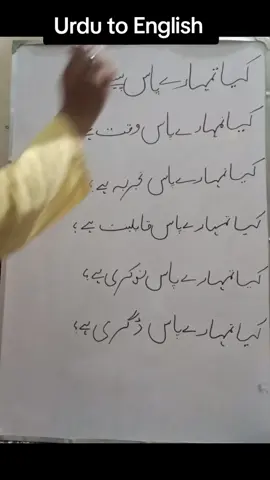 Urdu to English
کیا تمہارے پاس
کیا تمہارے پاس وقت ہے
کیا تمہارے پاس تجربہ ہے؟
کیا تمہارے پاس قابلیت ہے؟
کیا تمہارے پاس نوکری ہے؟
کیا تمہارے پاس ڈگری ہے؟